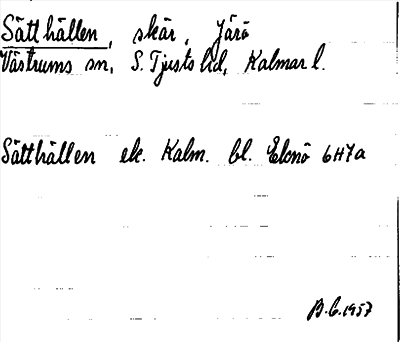 Sätthällen, skär, Järö
Västrums sn, S. Tjusts hd, Kalmar l.
Sätthällen ek. Kalm. bl. Elonö 6H7a
B.G. 1957